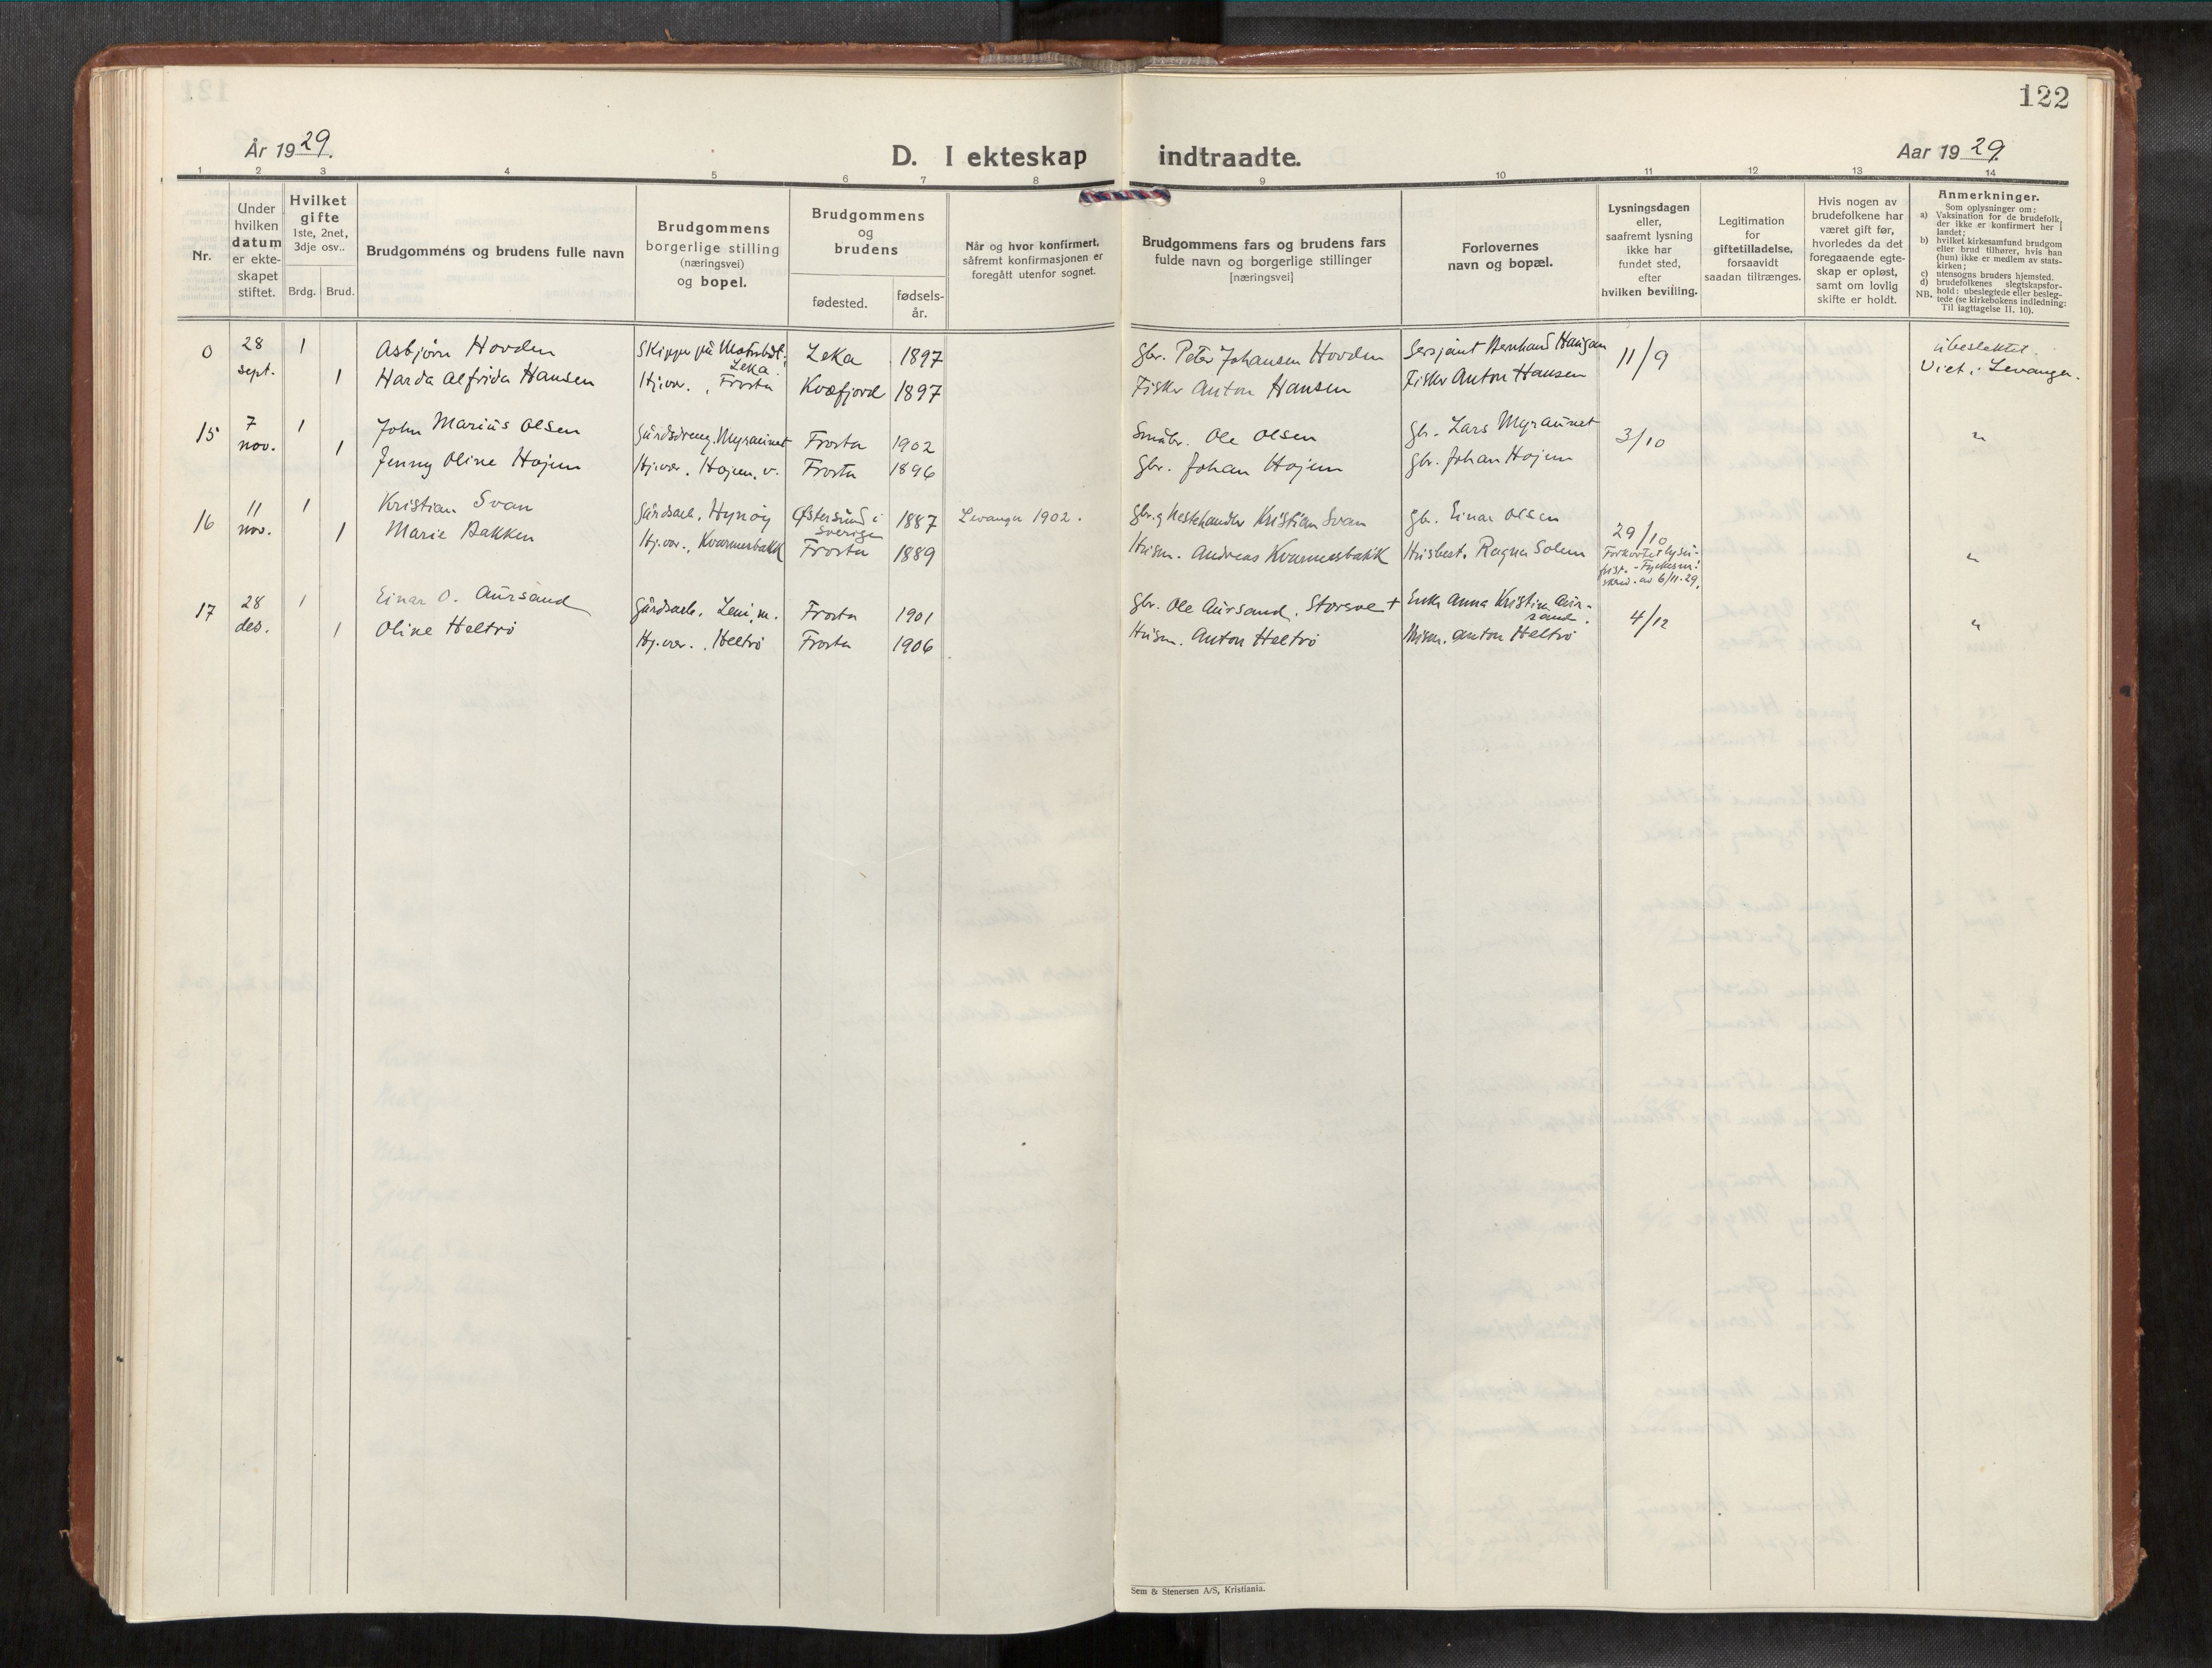 122
År 1929.
D. I ekteskap indtraadte.
Aar 1929.
1 2 3 4 5 6 7 8 9 10 11 12 13 14
Nr.
Under
hvilken
datum
er ekte-
skapet
stiftet.
Hvilket
gifte
1ste, 2net,
3dje osv..
Brdg. Brud.
Brudgommens og brudens fulle navn
Brudgommens
borgerlige stilling
(næringsvei)
og bopel.
Brudgommens
og
brudens
fødested.
fødsels-
år.
Når og hvor konfirmert,
såfremt konfirmasjonen er
foregått utenfor sognet.
Brudgommens fars og brudens fars
fulde navn og borgerlige stillinger
[næringsvei]
Forlovernes
navn og bopæl.
Lysningsdagen
eller,
saafremt lysning
ikke har
fundet sted,
efter
hvilken bevilling.
Legitimation
for
giftetilladelse,
forsaavidt
saadan tiltrænges.
Hvis nogen av
brudefolkene har
været gift før,
hvorledes da det
foregaaende egte-
skap er opløst,
samt om lovlig
skifte er holdt.
Anmerkninger.
Som oplysninger om:
a) Vaksination for de brudefolk,
der ikke er konfirmert her i
landet;
b) hvilket kirkesamfund brudgom
eller brud tilhører, hvis han
(hun) ikke er medlem av stats-
kirken;
c) utensogns bruders hjemsted.
d) brudefolkenes slegtskapsfor-
hold: ubeslegtede eller besleg-
NB. tede (se kirkebokens indledning:
Til iagttagelse II. 10).
0 28 sept. 1 Asbjørn Hovden Skipper på Leka. Leka 1897 Gbr. Peter Johansen Hovden Sersjant Bernhard Haugan 11/9 Ubeslektet.
1 Harda Alfrida Hansen Hj.vær., Frosta Kvæfjord 1897 Fisker Anton Hansen Fisker Anton Hansen Viet i Levanger.
15 7 nov. 1 John Marius Olsen Gårdsdreng. Myraunet Frosta 1902 Småbr. Ole Olsen Gbr. Lars Myraunet 3/10 "
1 Jenny Oline Hojem Hj.vær. Hojem. v. Frosta 1896 Gbr. Johan Hojem Gbr. Johan Hojem
16 11 nov. 1 Kristian Svan Gårdsarb. Hynøy Østersund i Sverige 1887 Levanger 1902. Gbr. og Hestehandler Kristian Svan Gb. Einar Olsen 29/10
1 Marie Bakken Hj.vær., Kvarmesbakk Frosta 1889 Husm. Andreas Kvarmesbakk Husbest. Ragna Solem Forkortet lysn.- frist. - Fylkesm. skriv. av 6/11-29. "
17 28 des. 1 Einar O. Aursand Gårdsarb. Frosta 1901 Gbr. Ole Aursand. Storsve + Enke Anna Kristine Aur- sand. 4/12 "
1 Oline Heltrø Hj.vær., Heltrø Frosta 1906 Husm. Anton Heltrø Husm. Anton Heltrø
Sem & Stenersen A/S, Kristiania.